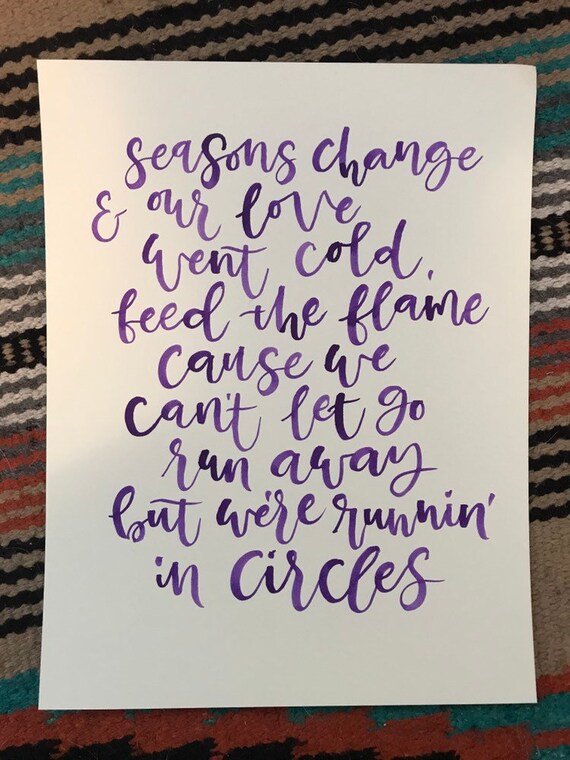 seasons change
& our love
went cold,
feed the flame
cause we
can't let go
run away
but we're runnin'
in circles